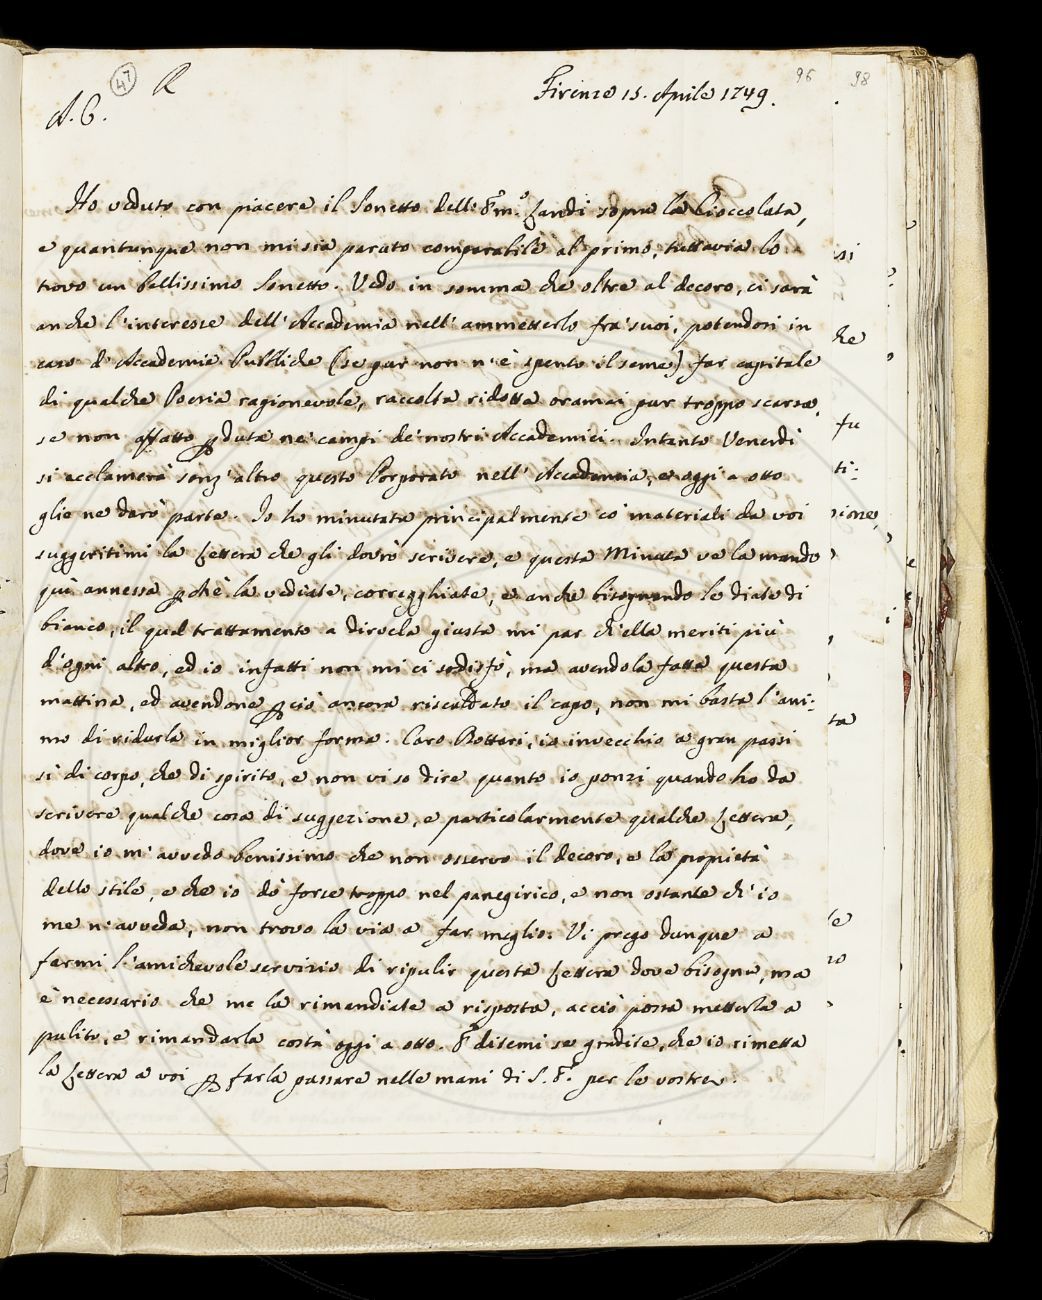 47 R
96 98
A. C.
Firenze 15. Aprile 1749.
Ho veduto con piacere il Sonetto dello E.mo Landi sopra la Cioccolata,
e quantunque non mi sia paruto comparabile al primo, tuttavia lo
trovo un bellissimo Sonetto. Vedo in somma che oltre al decoro, ci sarà
anche l'interesse dell'Accademia nell'ammetterlo fra' suoi, potendosi in
caso d'Accademie Pubbliche (se pur non n'è spento il seme) far capitale
di qualche Poesia ragionevole, raccolta ridotta oramai pur troppo scarsa,
se non affatto pduta ne' campi de' nostri Accademici. Intanto Venerdì
si acclamerà senz'altro questo Porporato nell'Accademia, e oggi a otto
glie ne darò parte. Io ho minutata principalmente co' materiali da voi
suggeritimi la Lettera che gli dovrò scrivere, e questa Minuta ve la mando
quì annessa pchè la vediate, corregghiate, e anche bisognando le diate di
bianco, il qual trattamento a dirvela giusta mi par ch'ella meriti più
d'ogni altro, ed io infatti non mi ci sodisfò, ma avendola fatta questa
mattina, ed avendone pciò ancora riscaldato il capo, non mi basta l'ani:
mo di ridurla in miglior forma. Caro Bottari, io invecchio a gran passi
sì di corpo, che di spirito, e non vi so dire quanto io ponzi quando ho da
scrivere qualche cosa di suggezione, e particolarmente qualche Lettera,
dove io m'avvedo benissimo che non osservo il decoro, e la propietà
dello stile, e che io dò forse troppo nel panegirico, e non ostante ch'io
me n'avveda, non trovo la via a far meglio. Vi prego dunque a
farmi l'amichevole servizio di ripulir questa Lettera dove bisogna, ma
è necessario che me la rimandiate a risposta, acciò possa metterla a
pulito, e rimandarla costà oggi a otto. E ditemi se gradite, che io rimetta
la Lettera a voi p farla passare nelle mani di S. E. per le vostre.